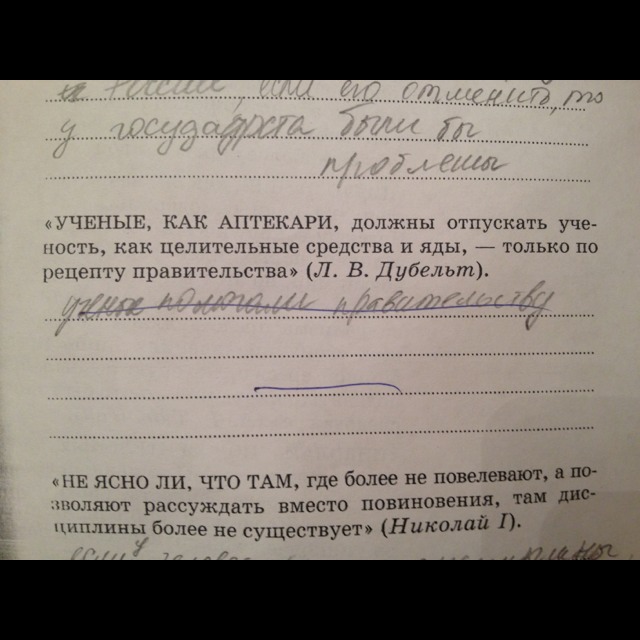 России, если его отменить, то
у государства были бы
проблемы
«УЧЕНЫЕ, КАК АПТЕКАРИ, должны отпускать уче-
ность, как целительные средства и яды, — только по
рецепту правительства» (Л. В. Дубельт).
ученые помогали правительству
«НЕ ЯСНО ЛИ, ЧТО ТАМ, где более не повелевают, а по-
зволяют рассуждать вместо повиновения, там дис-
циплины более не существует» (Николай I).
если у